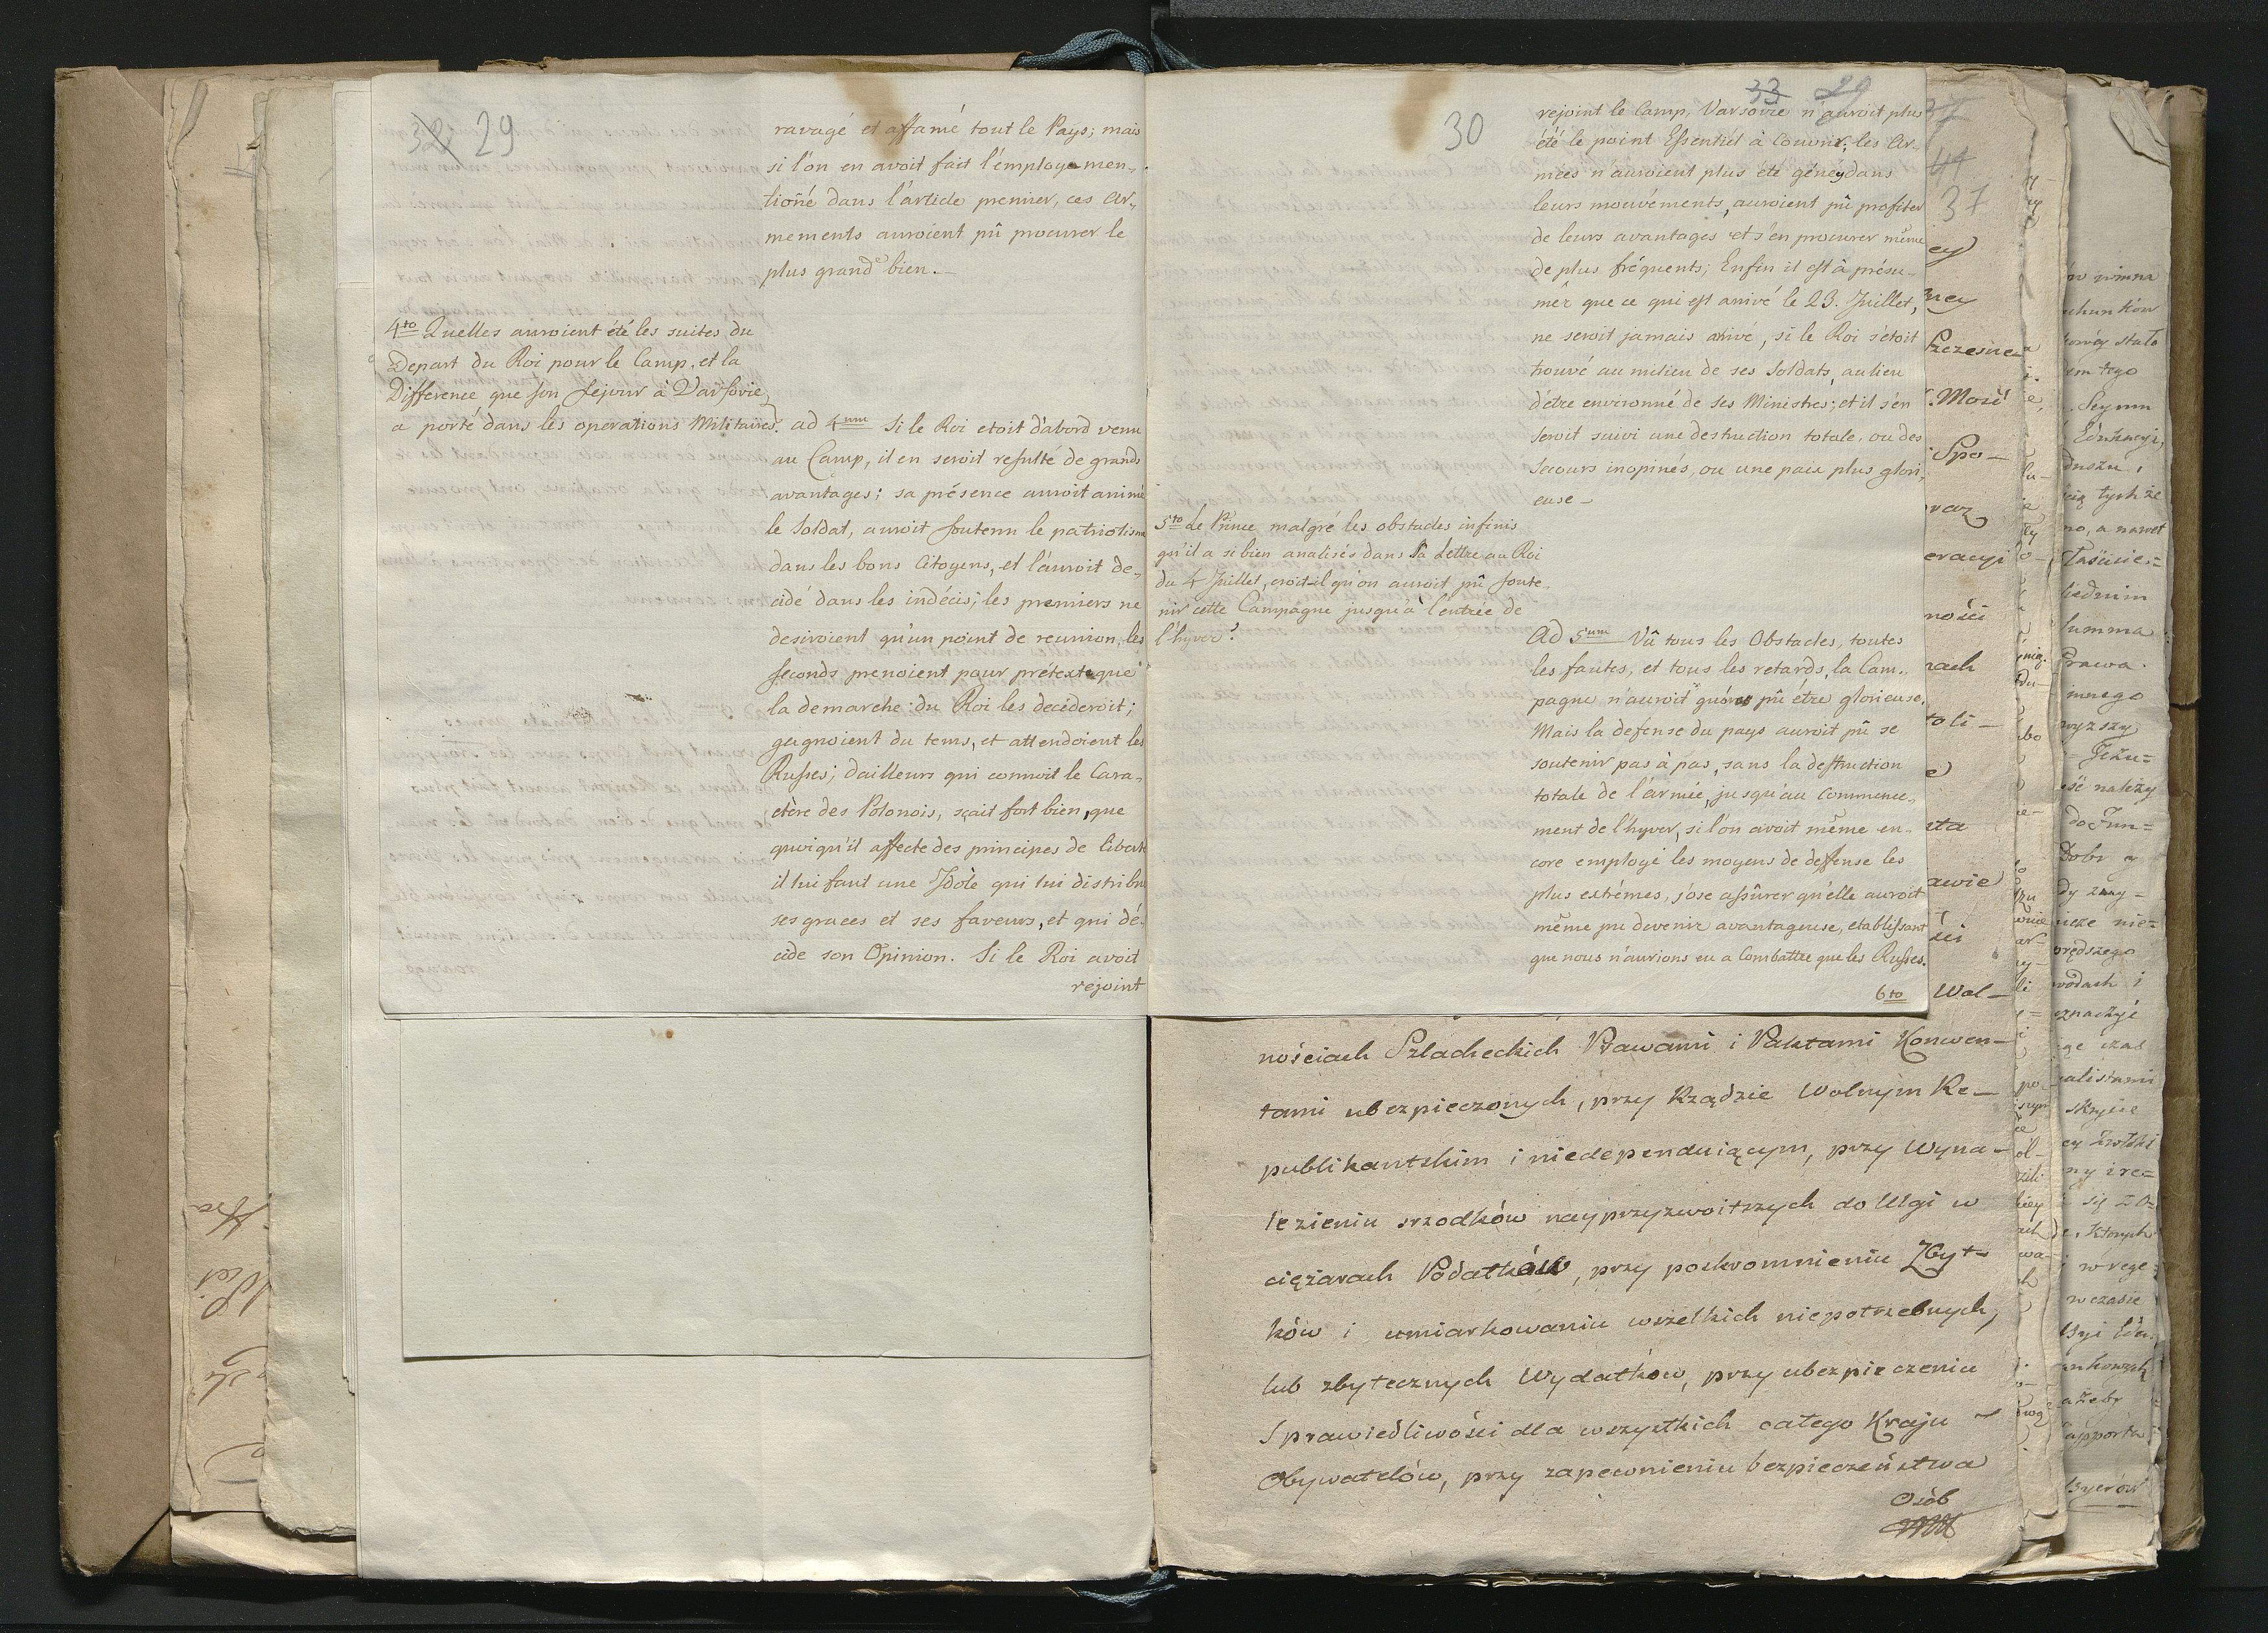 32 29
ravagé et affamé tout le Pays; mais
si l'on en avoit fait l'employe men„
tioñé dans l'article premier, ces Ar„
mements auroient pû procurer le
plus grand bien.—
4to Quelles auroient été les suites du
Depart du Roi pour le Camp, et la
Difference que son sejour à Varsovie,
a porté dans les operations Militaires.
ad 4um Si le Roi etoit d'abord venu
au Camp, il en seroit resulté de grands
avantages; sa présence auroit animé
le Soldat, auroit soutenu le patriotisme
dans les bons Citoyens, et l'auroit de„
cidé dans les indécis; les premiers ne
desiroient qu'un point de reunion, les
seconds prenoient pour prétexte que
la demarche du Roi les decideroit;
gagnoient du tems, et attendoient les
Russes; dailleurs qui connoit le Cara„
ctère des Polonois, sçait fort bien, que
quoiqu'il affecte des principes de liberté
il lui faut une Idole qui lui distribue
ses graces et ses faveurs, et qui dé„
cide son Opinion. Si le Roi avoit
rejoint
30
33 29
rejoint le Camp, Varsovie n'auroit plus
été le point Essentiel à Couvrir, les Ar„
mées n'auroient plus été génés dans
leurs mouvéments, auroient pû profiter
de leurs avantages et s'en procurer même
de plus fréquents; Enfin il est à présu„
mér que ce qui est arrivé le 23. Juillet,
ne seroit jamais arrivé, si le Roi s'étoit
trouvé au milieu de ses Soldats, au lieu
d'étre environné de ses Ministres; et il s'en
seroit suivi une destruction totale, ou des
secours inopinés, ou une paix plus glori„
euse—
5to Le Prince malgré les obstacles infinis
qu'il a si bien analisés dans sa Lettre au Roi
du 4 Juillet, croit-il qu'on auroit pû soute„
nir cette Campagne jusqu'à l'entrée de
l'hyver?
Ad 5um Vû tous les Obstacles, toutes
les fautes, et tous les retards, la Cam„
pagne n'auroit guéres pû étre glorieuse,
Mais la defense du pays auroit pû se
soutenir pas à pas, sans la destruction
totale de l'armée, jusqu'au Commence„
ment de l'hyver, si l'on avoit même en„
core employé les moyens de deffense les
plus extrémes, j'ose assûrer qu'elle auroit
même pu devenir avantageuse, etablissant
que nous n'aurions eu a Combattre que les Russes.
6to
37
nościach Szlacheckich Prawami i Paktami Konwen—
tami ubezpieczonych, przy Rządzie Wolnym Re—
publikantskim i niedependuiącym, przy Wyna—
lezieniu srzodków nayprzyzwoitszych do Ulgi w
ciężarach Podatków, przy poskromnieniu Zbyt—
ków i umiarkowaniu wszelkich niepotrzebnych,
lub zbytecznych Wydatków, przy ubezpieczeniu
Sprawiedliwości dla wszystkich całego Kraju
Obywatelów, przy zapewnieniu bezpieczeństwa
Osób